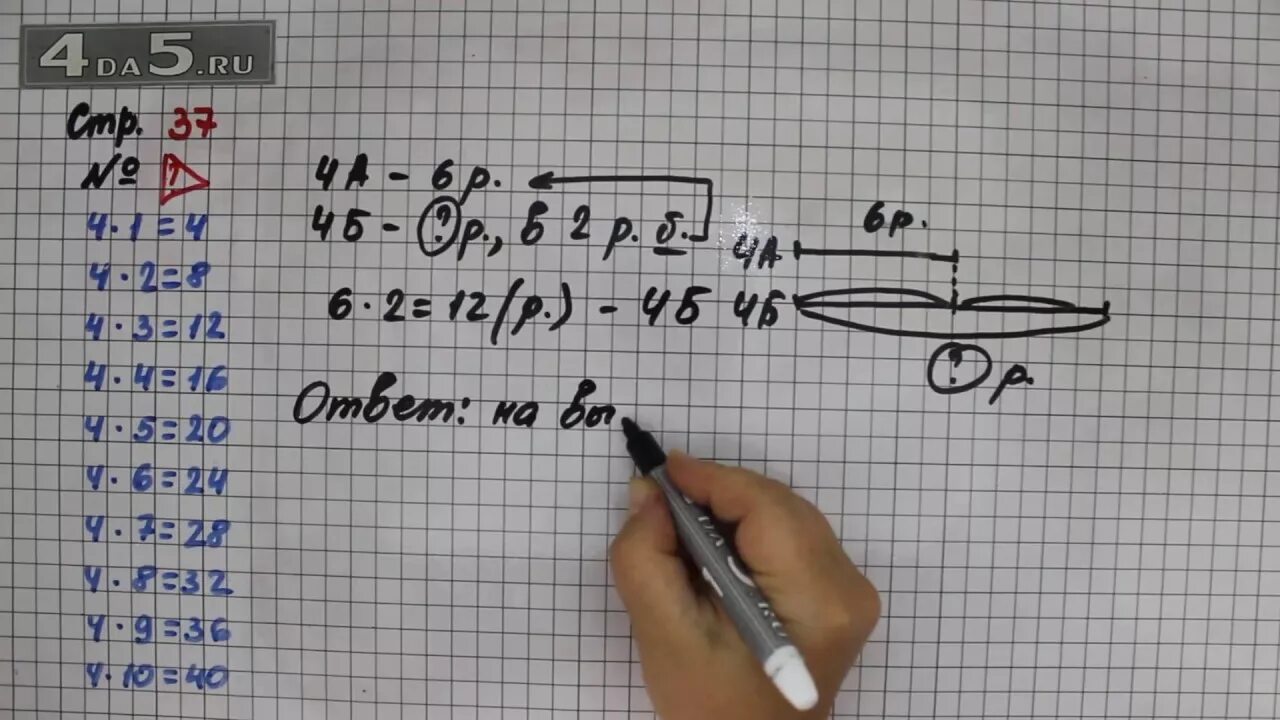 4DA5.RU
Стр. 37
№ 1
4·1=4
4·2=8
4·3=12
4·4=16
4·5=20
4·6=24
4·7=28
4·8=32
4·9=36
4·10=40
4А - 6р.
4Б - ?р., в 2 р. б.
6·2=12(р.) - 4Б
Ответ: на вы
6р.
4А
4Б
? р.